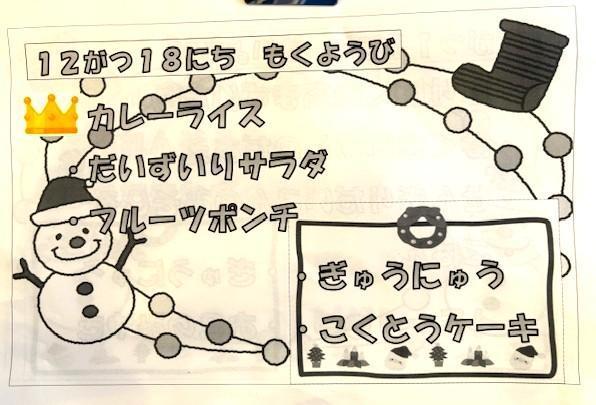 12がつ18にち　もくようび
カレーライス
・だいずいりサラダ
・フルーツポンチ
・ぎゅうにゅう
・こくとうケーキ